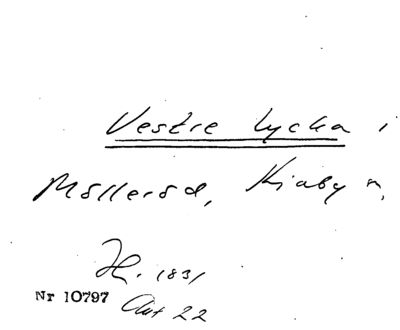 Vestre lycka i
Mölleröd, Kiaby n,
H. 1831
Nr 10797 Akt 22